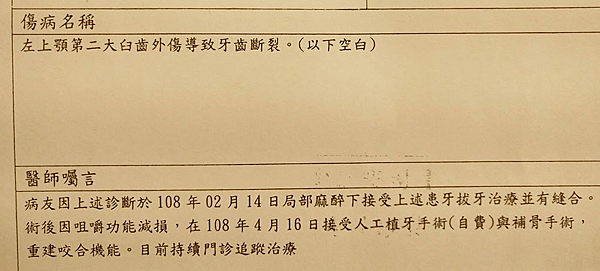 傷病名稱
左上顎第二大臼齒外傷導致牙齒斷裂。(以下空白)
醫師囑言
病友因上述診斷於108年02月14日局部麻醉下接受上述患牙拔牙治療並有縫合。
術後因咀嚼功能減損，在108年4月16日接受人工植牙手術(自費)與補骨手術，
重建咬合機能。目前持續門診追蹤治療